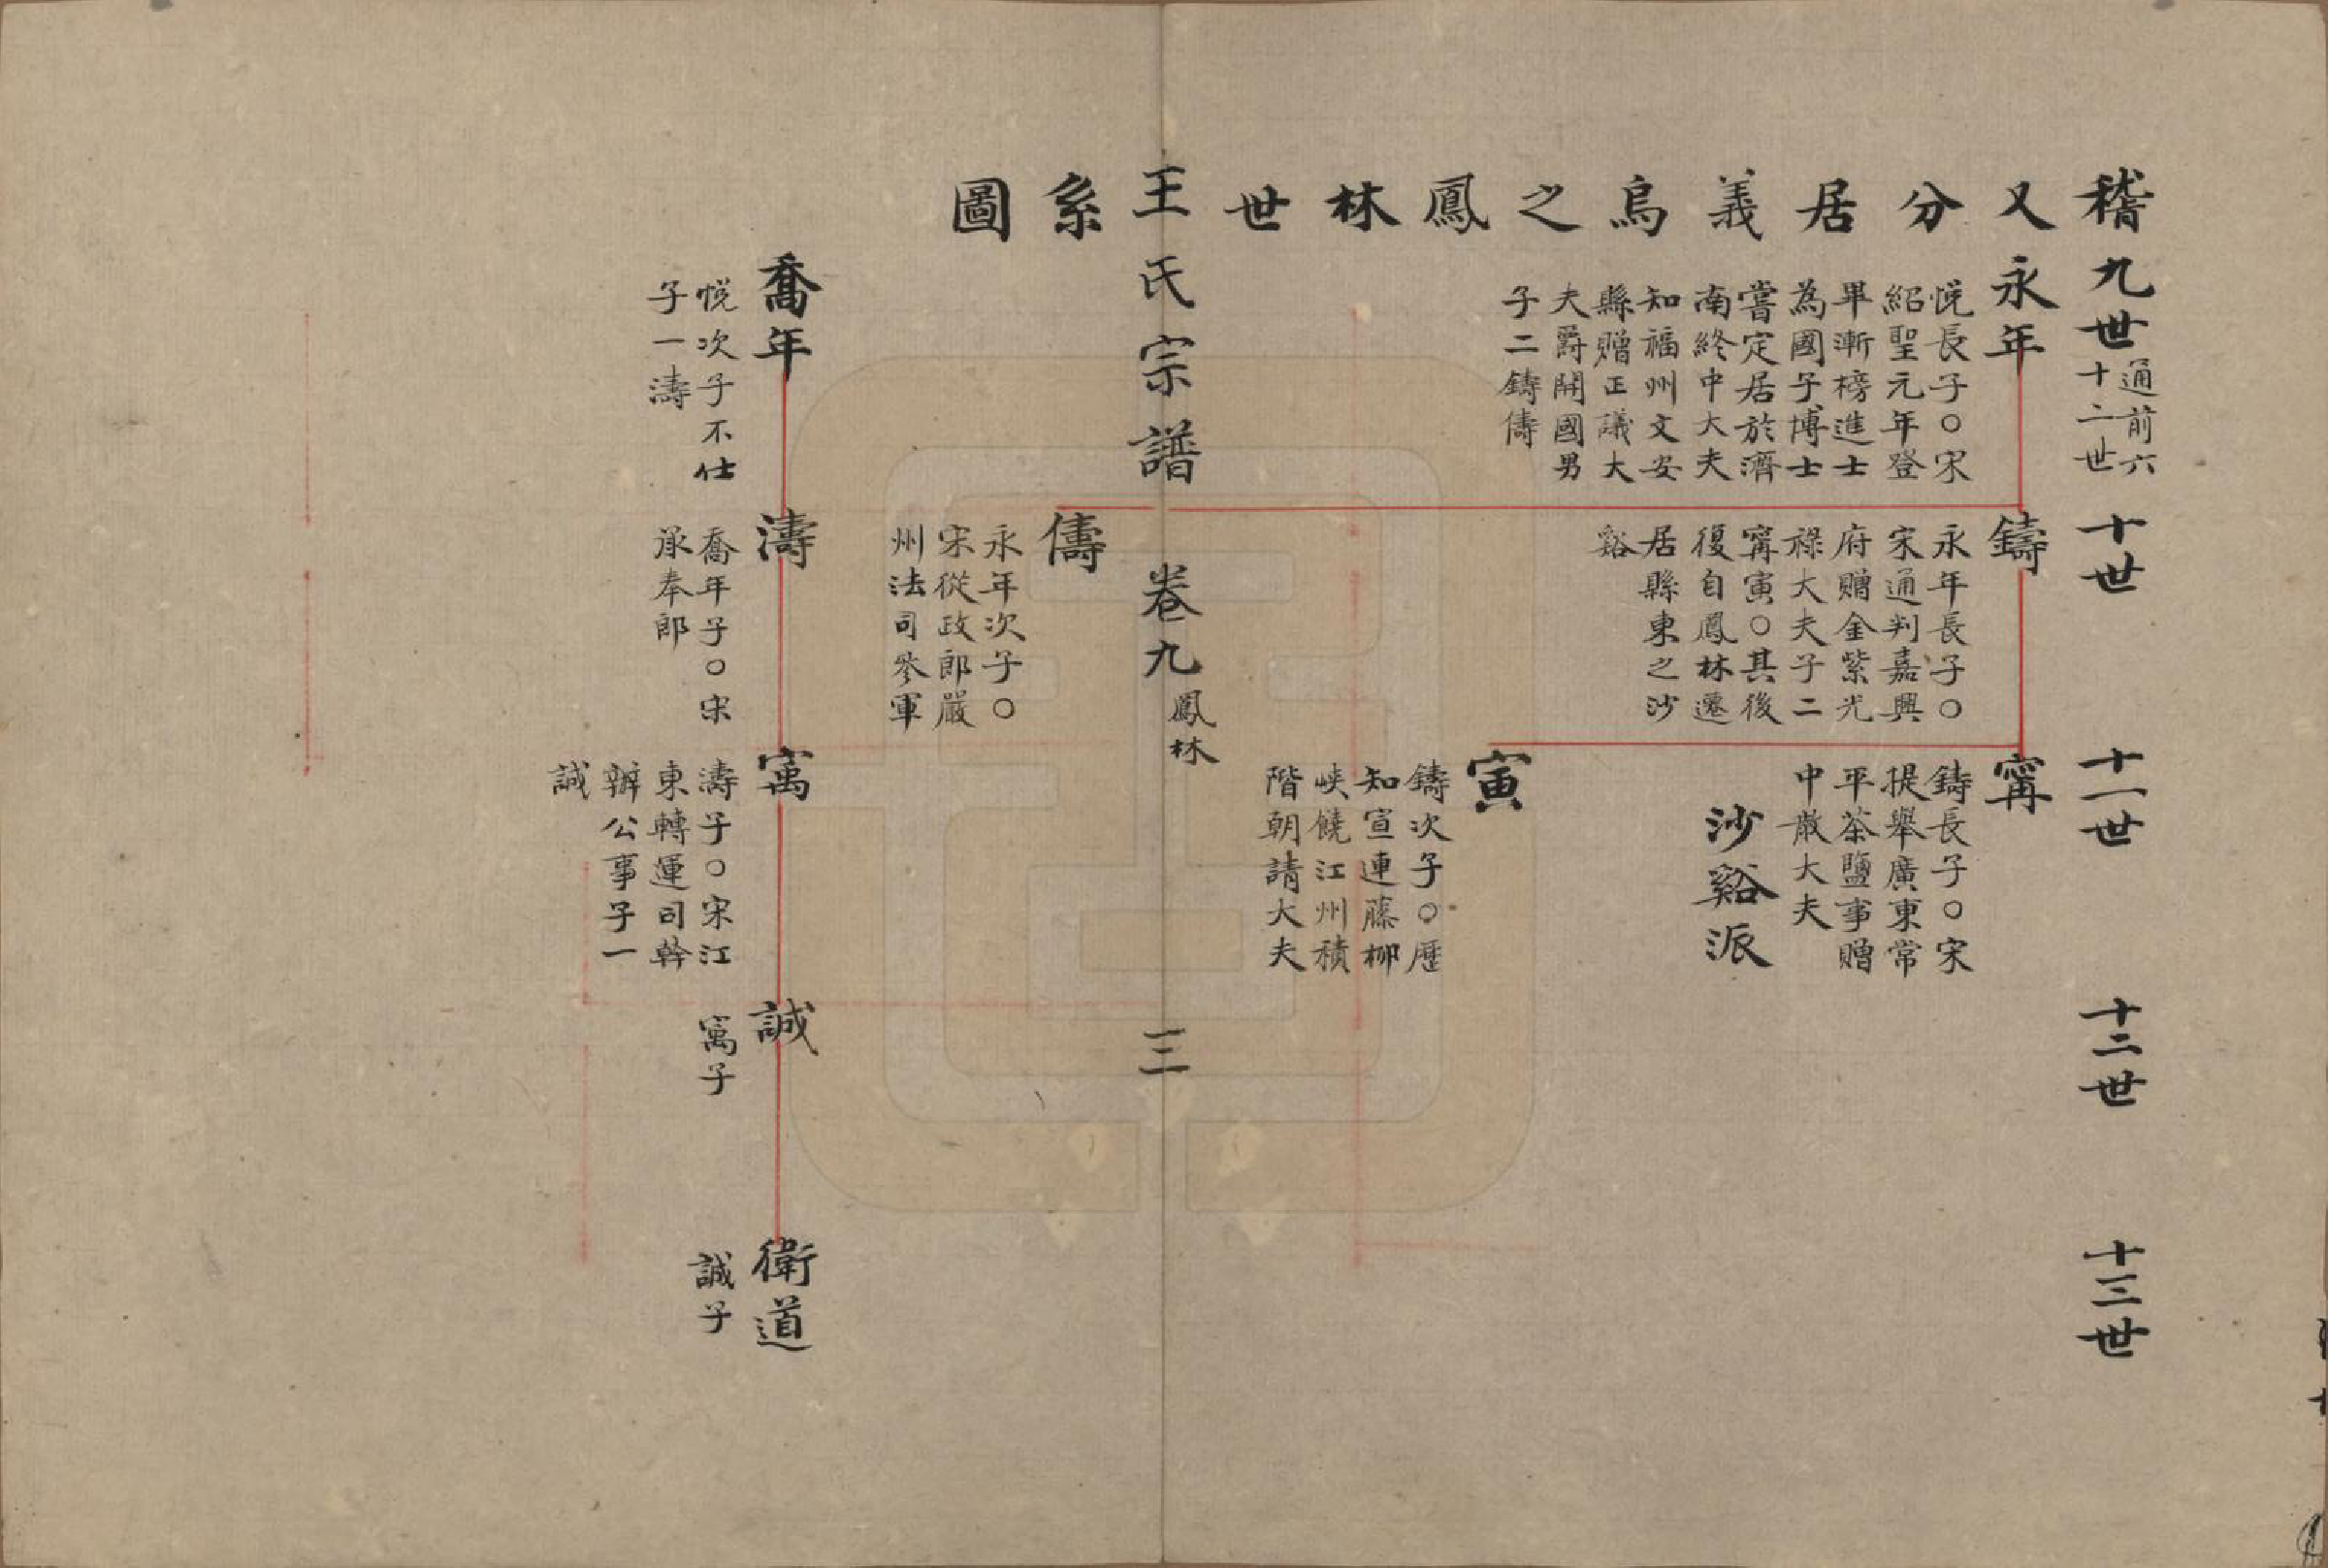 稽又分居義烏之鳳林世系圖
九世
通前六
十二世
十世
十一世
十二世
十三世
永年
悅長子○宋
紹聖元年登
畢漸榜進士
為國子博士
嘗定居於濟
南終中大夫
知福州文安
縣贈正議大
夫爵開國男
子二鑄儔
鑄
永年長子○
宋通判嘉興
府贈金紫光
祿大夫子二
寗寅○其後
復自鳳林遷
居縣東之沙
谿
寗
鑄長子○宋
提舉廣東常
平茶鹽事贈
中散大夫
沙谿派
寅
鑄次子○歷
知宣連藤柳
峽饒江州積
階朝請大夫
王氏宗譜
卷九
鳳林
三
儔
永年次子○
宋從政郎嚴
州法司參軍
喬年
悅次子不仕
子一濤
濤
喬年子○宋
承奉郎
寓
濤子○宋江
東轉運司幹
辦公事子一
誠
誠
寓子
衛道
誠子